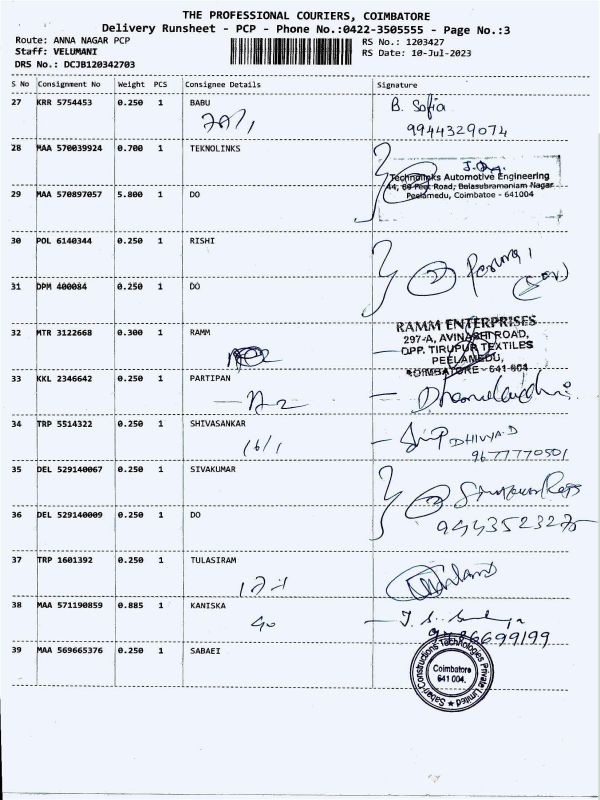 THE PROFESSIONAL COURIERS, COIMBATORE
Delivery Runsheet - PCP - Phone No.:0422-3505555 - Page No.:3
Route: ANNA NAGAR PCP RS No.: 1203427
Staff: VELUMANI RS Date: 10-Jul-2023
DRS No.: DCJB120342703
S No Consignment No Weight PCS Consignee Details Signature
27 KRR 5754453 0.250 1 BABU B. Sofia
9944329074
28 MAA 570039924 0.700 1 TEKNOLINKS
Technolinks Automotive Engineering
44, 60 Feet Road, Balasubramaniam Nagar
29 MAA 570897057 5.800 1 DO Peelamedu, Coimbatoe - 641004
30 POL 6140344 0.250 1 RISHI
31 DPM 400084 0.250 1 DO
RAMM ENTERPRISES
32 MTR 3122668 0.300 1 RAMM 297-A, AVINASHI ROAD,
OPP. TIRUPUR TEXTILES
PEELAMEDU,
COIMBATORE - 641 004
33 KKL 2346642 0.250 1 PARTIPAN
34 TRP 5514322 0.250 1 SHIVASANKAR
16/1 DHIVYA.D
9677770501
35 DEL 529140067 0.250 1 SIVAKUMAR
36 DEL 529140009 0.250 1 DO
9443523275
37 TRP 1601392 0.250 1 TULASIRAM
38 MAA 571190859 0.885 1 KANISKA
39 MAA 569665376 0.250 1 SABAEI
Coimbatore
641 004.